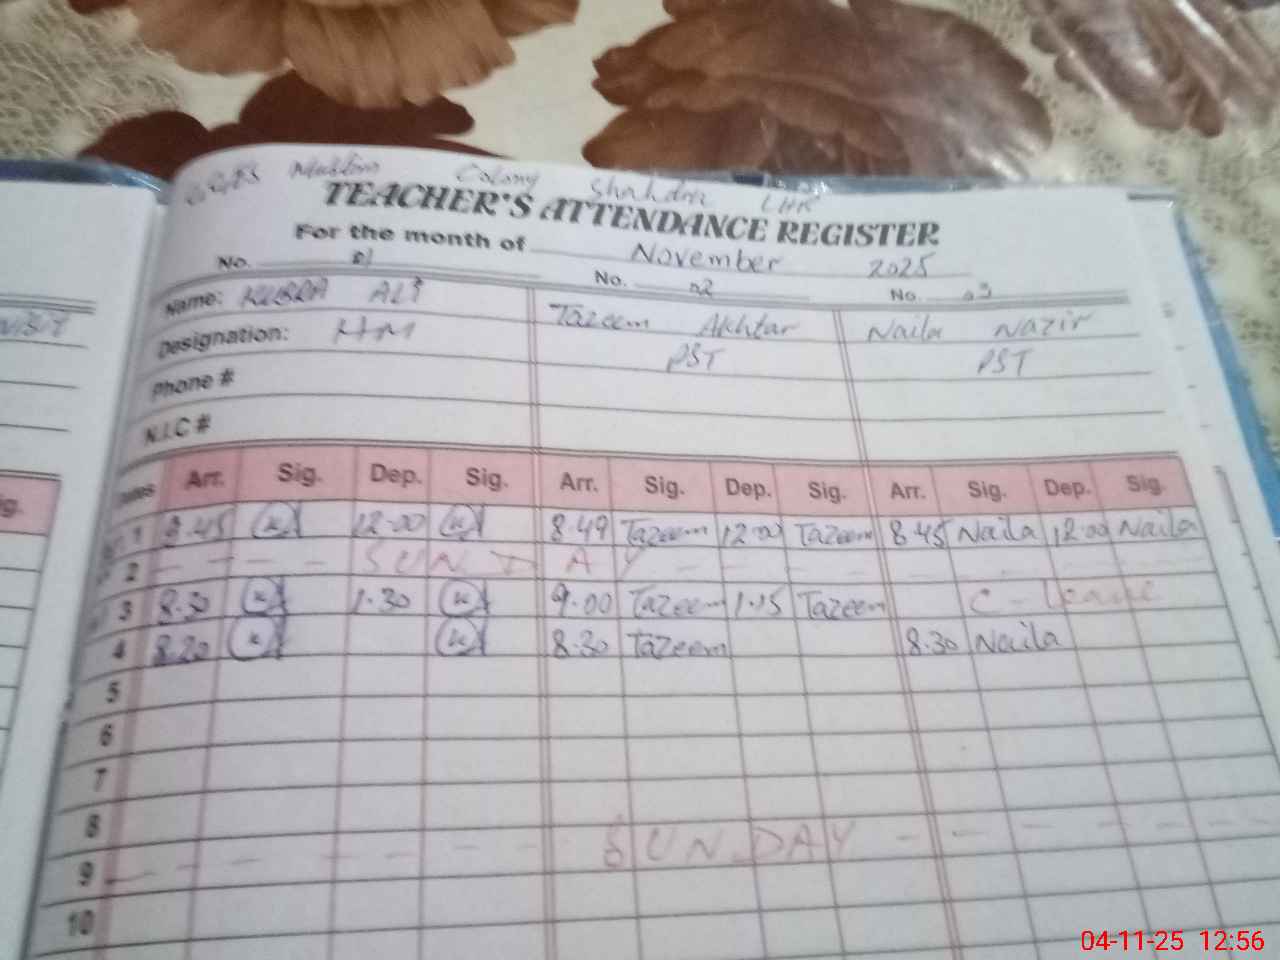 Colony Shahdra LHR
TEACHER'S ATTENDANCE REGISTER
For the month of November 2025
No. 01 No. 02 No. 03
Name: KUBRA ALI Tazeem Akhtar Naila Nazir
Designation: HM PST PST
Phone #
N.I.C #
Arr. Sig. Dep. Sig. Arr. Sig. Dep. Sig. Arr. Sig. Dep. Sig.
1 8.45 12.00 8.49 Tazeem 12.00 Tazeem 8.45 Naila 12.00 Naila
2 SUNDAY
3 8.30 1.30 9.00 Tazeem 1.15 Tazeem C-leave
4 8.20 8.30 Tazeem 8.30 Naila
5
6
7
8
9 SUNDAY
10
04-11-25 12:56